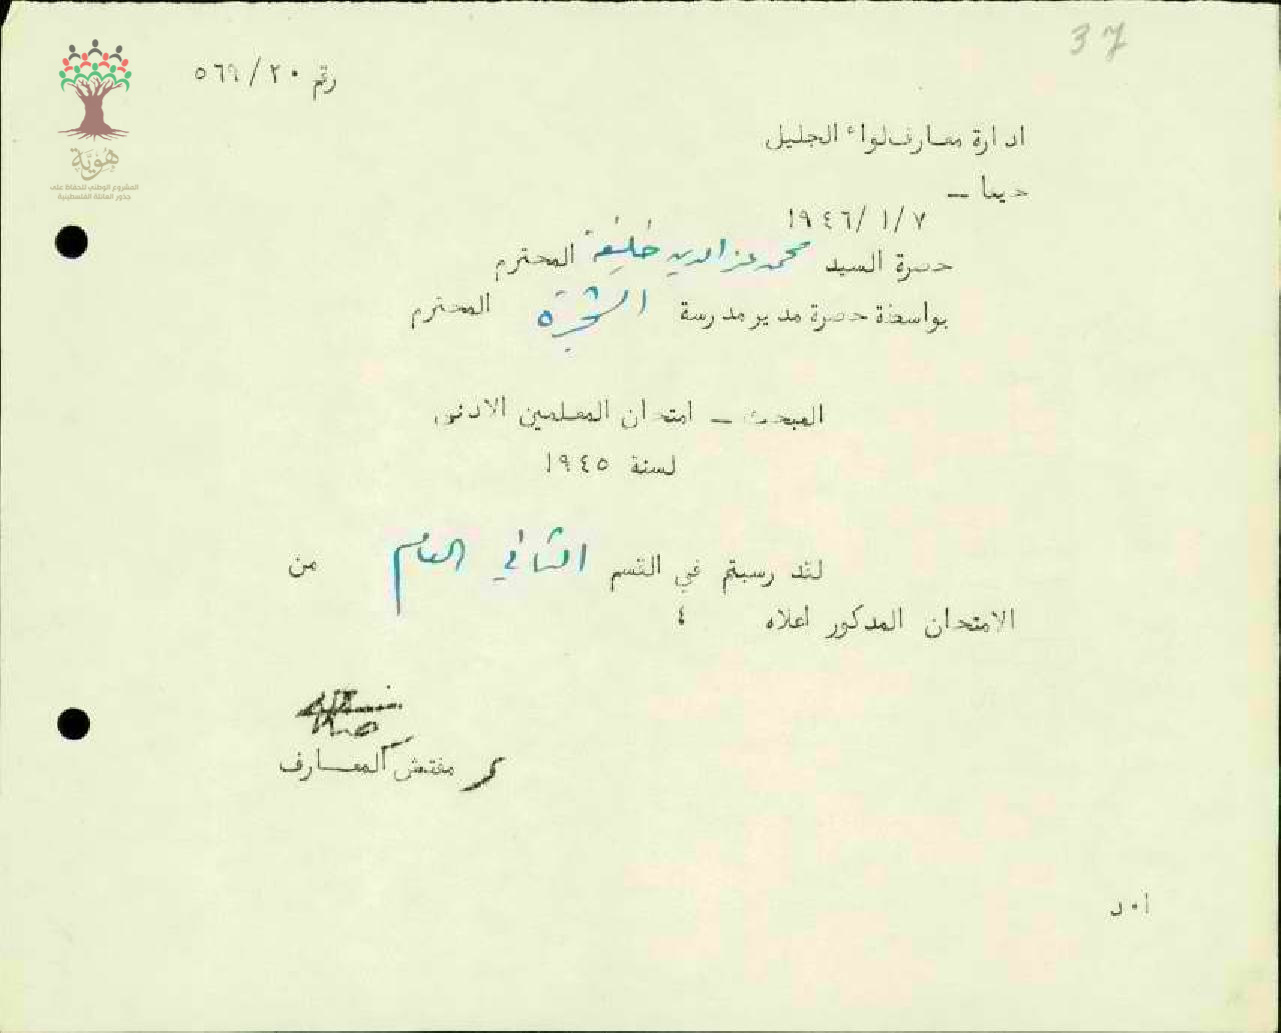 37
رقم ٥٦٩/٢٠
هُوِيَّة
المشروع الوطني للحفاظ على
جذور العائلة الفلسطينية
ادارة معارف لواء الجليل
حيفا –
١٩٤٦/١/٧
حضرة السيد محمد عز الدين خليفة المحترم
بواسطة حضرة مدير مدرسة الشجرة المحترم
المبحث – امتحان المعلمين الادنى
لسنة ١٩٤٥
لقد رسبتم في القسم الثاني العام من
الامتحان المذكور اعلاه ٤
مفتش المعارف
أ٠د